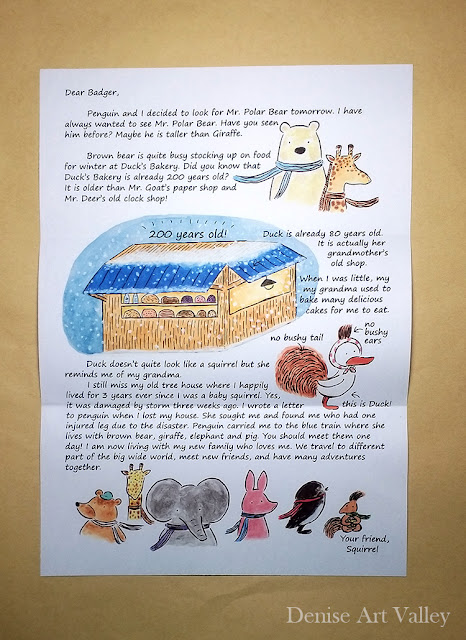 Dear Badger,
Penguin and I decided to look for Mr. Polar Bear tomorrow. I have
always wanted to see Mr. Polar Bear. Have you seen
him before? Maybe he is taller than Giraffe.
Brown bear is quite busy stocking up on food
for winter at Duck's Bakery. Did you know that
Duck's Bakery is already 200 years old?
It is older than Mr. Goat's paper shop and
Mr. Deer's old clock shop!
200 years old!
Duck is already 80 years old.
It is actually her
grandmother's
old shop.
When I was little, my
my grandma used to
bake many delicious
cakes for me to eat.
no
bushy
ears
no bushy tail
this is Duck!
Duck doesn't quite look like a squirrel but she
reminds me of my grandma.
I still miss my old tree house where I happily
lived for 3 years ever since I was a baby squirrel. Yes,
it was damaged by storm three weeks ago. I wrote a letter
to penguin when I lost my house. She sought me and found me who had one
injured leg due to the disaster. Penguin carried me to the blue train where she
lives with brown bear, giraffe, elephant and pig. You should meet them one
day! I am now living with my new family who loves me. We travel to different
part of the big wide world, meet new friends, and have many adventures
together.
Your friend,
Squirrel
Denise Art Valley